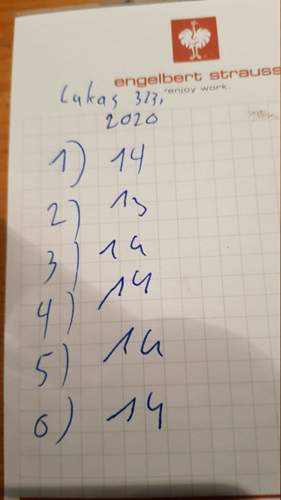 engelbert strauss
enjoy work.
Lukas 313.
2020
1) 14
2) 13
3) 14
4) 14
5) 14
6) 14